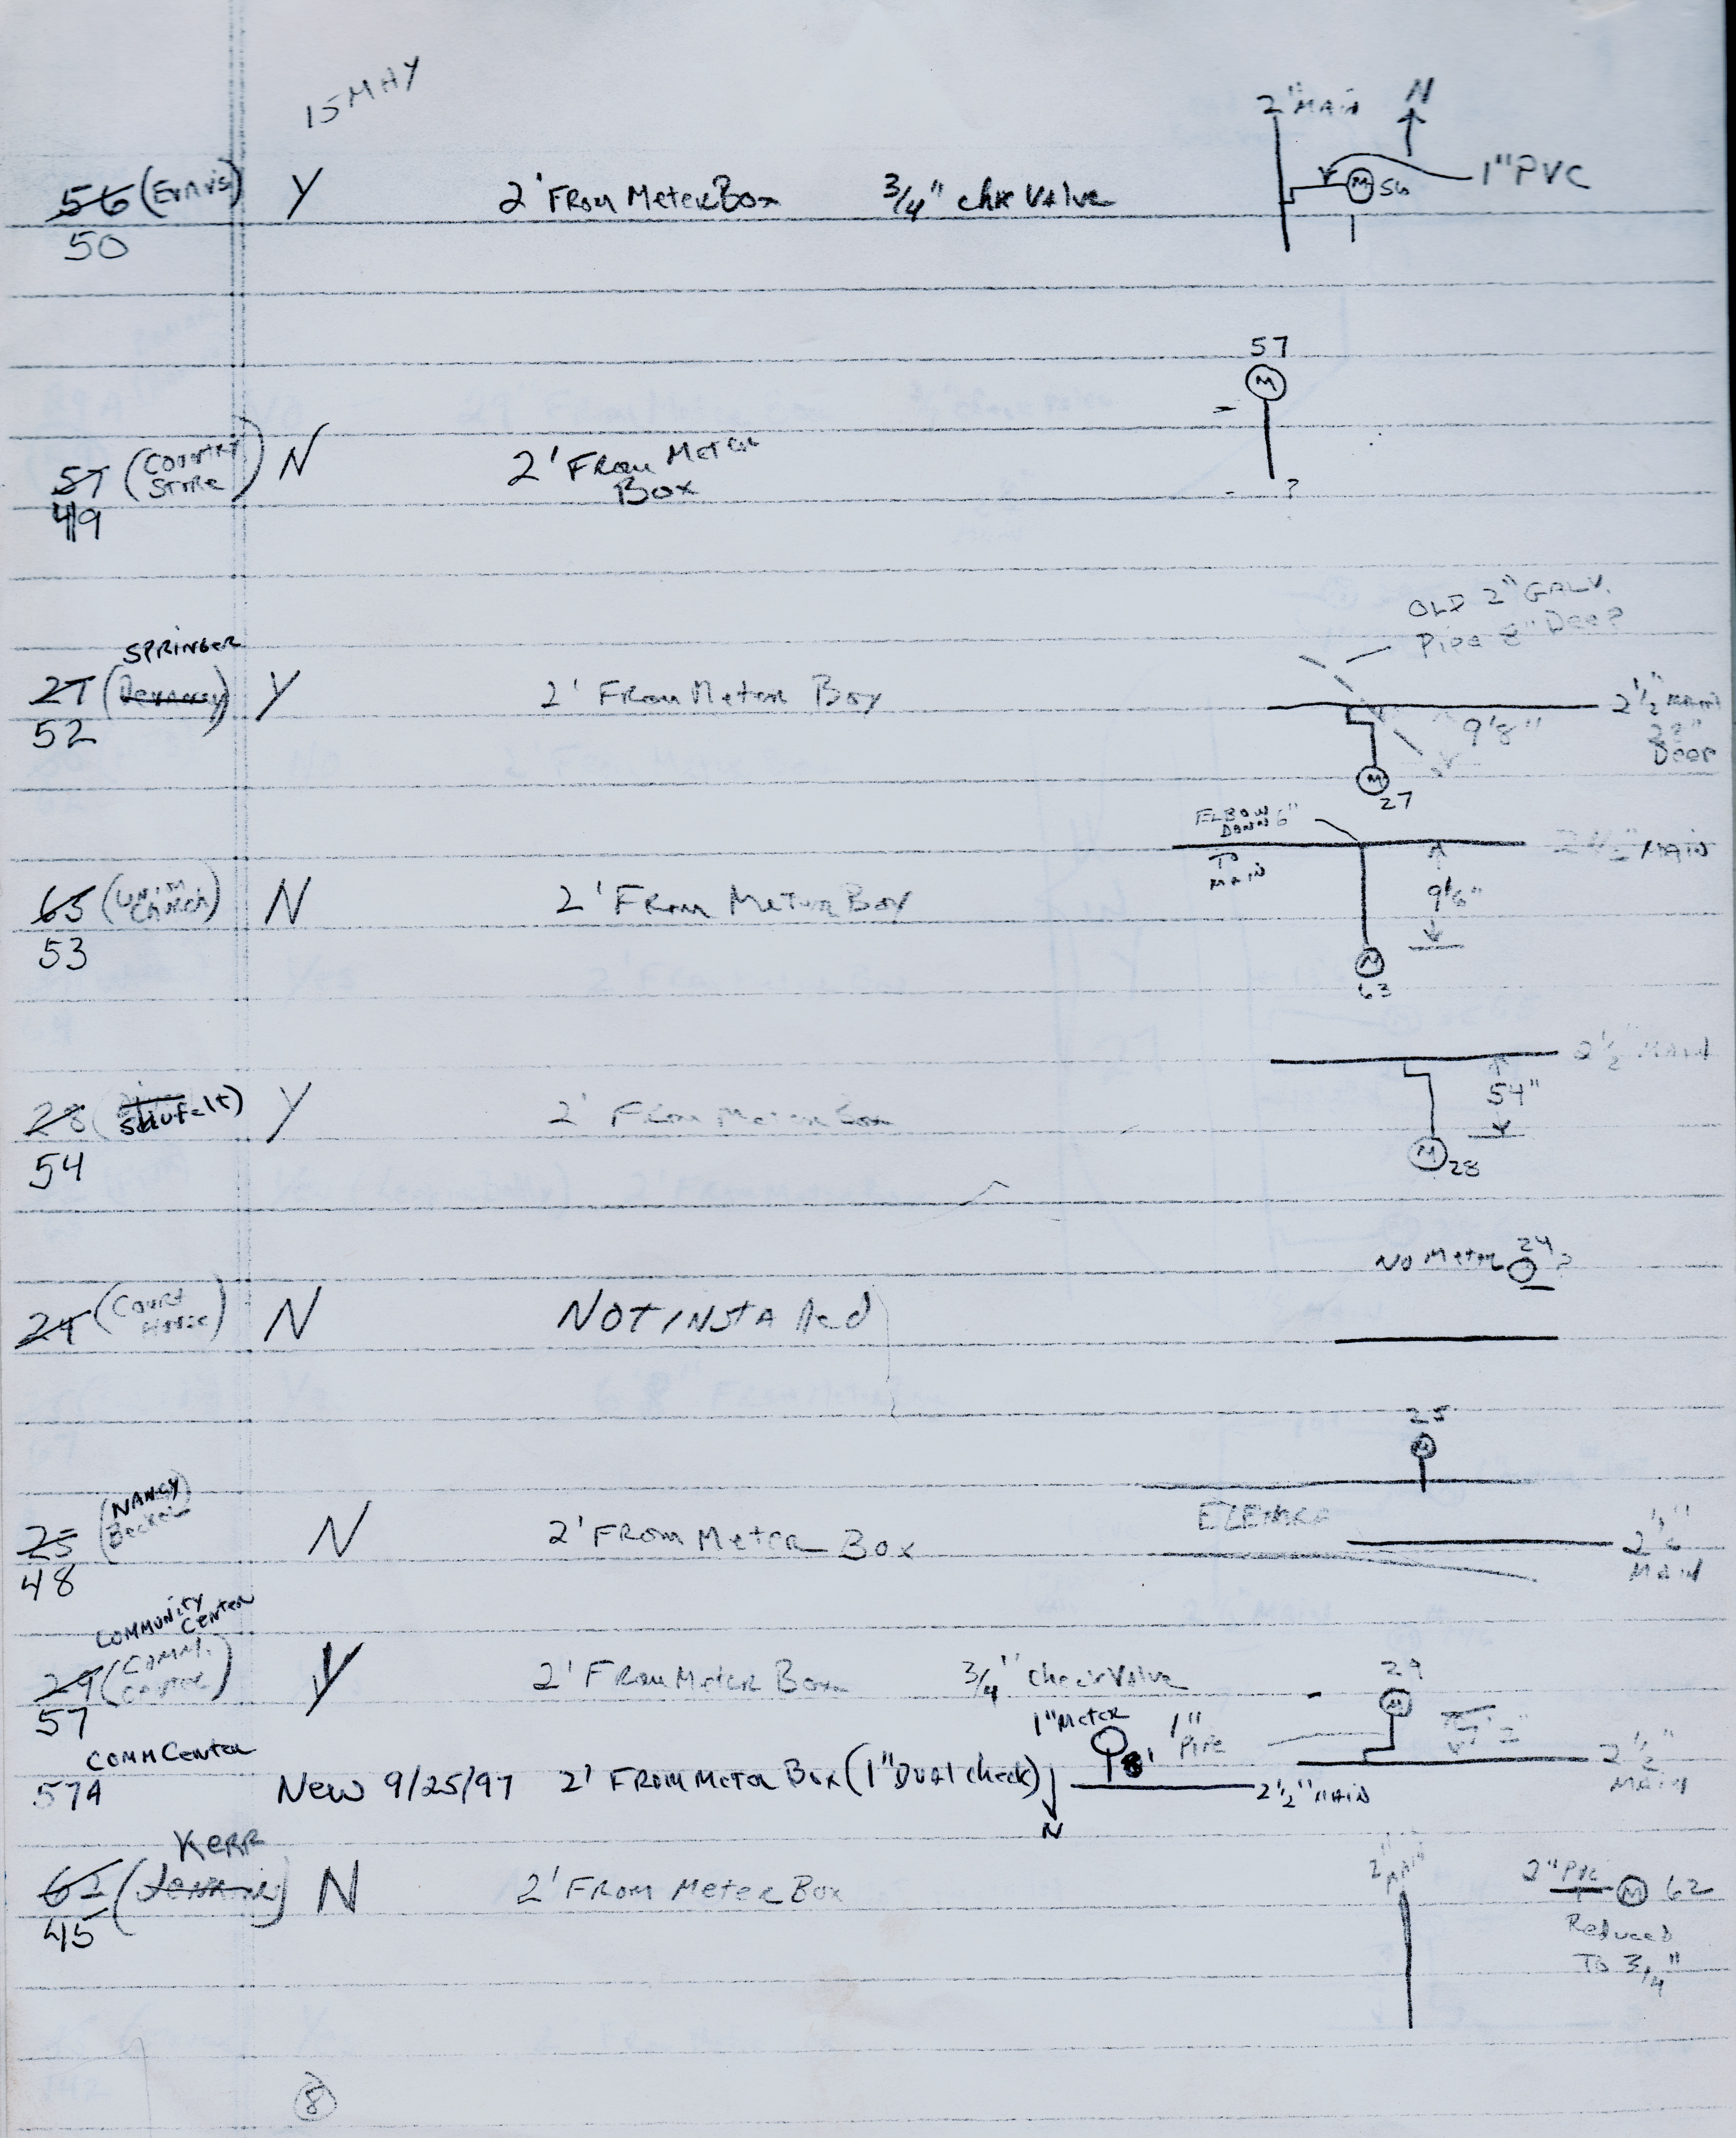 15 MAY
2" MAIN N
56 (Ennis) Y 2' FROM Meter Box 3/4" chk Valve M 56 1" PVC
50
57
M
57 (Country Store) N 2' FROM Meter Box
?
49
OLD 2" GALV.
Pipe 8" Deep
SPRINGER
27 Y 2' From Meter Box 2 1/2" MAIN
28" Deep
9'8"
52
M 27
ELBOW DOWN 6"
TO MAIN
2 1/2" MAIN
63 (Church) N 2' FROM Meter Box 9'6"
53
M
63
2 1/2" MAIN
28 (Shufelt) Y 2' FROM Meter Box 54"
54
M 28
NO Meter 24 ?
24 (Court House) N NOT INSTAlled
25
M
(NANCY Becker)
25 N 2' FROM Meter Box 2 1/2" MAIN
48
COMMUNITY Center
29 (COMM. Center) Y 2' FROM Meter Box 3/4" Check Valve 29
M
57
1" Meter 1" PIPE 7'2" 2 1/2" MAIN
COMM Center
57A New 9/25/97 2' FROM Meter Box (1" Dual check) 8' 2 1/2" MAIN
N
Kerr
62 N 2' FROM Meter Box 2" MAIN 2" PVC M 62
Reduced
TO 3/4"
45
8